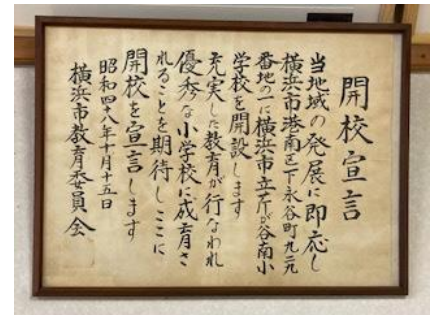 開校宣言
当地域の発展に即応し
横浜市港南区下永谷町九二九
番地の一に横浜市立芹が谷南小
学校を開設します
充実した教育が行なわれ
優秀な小学校に成育さ
れることを期待しここに
開校を宣言します
昭和四十八年十月十五日
横浜市教育委員会